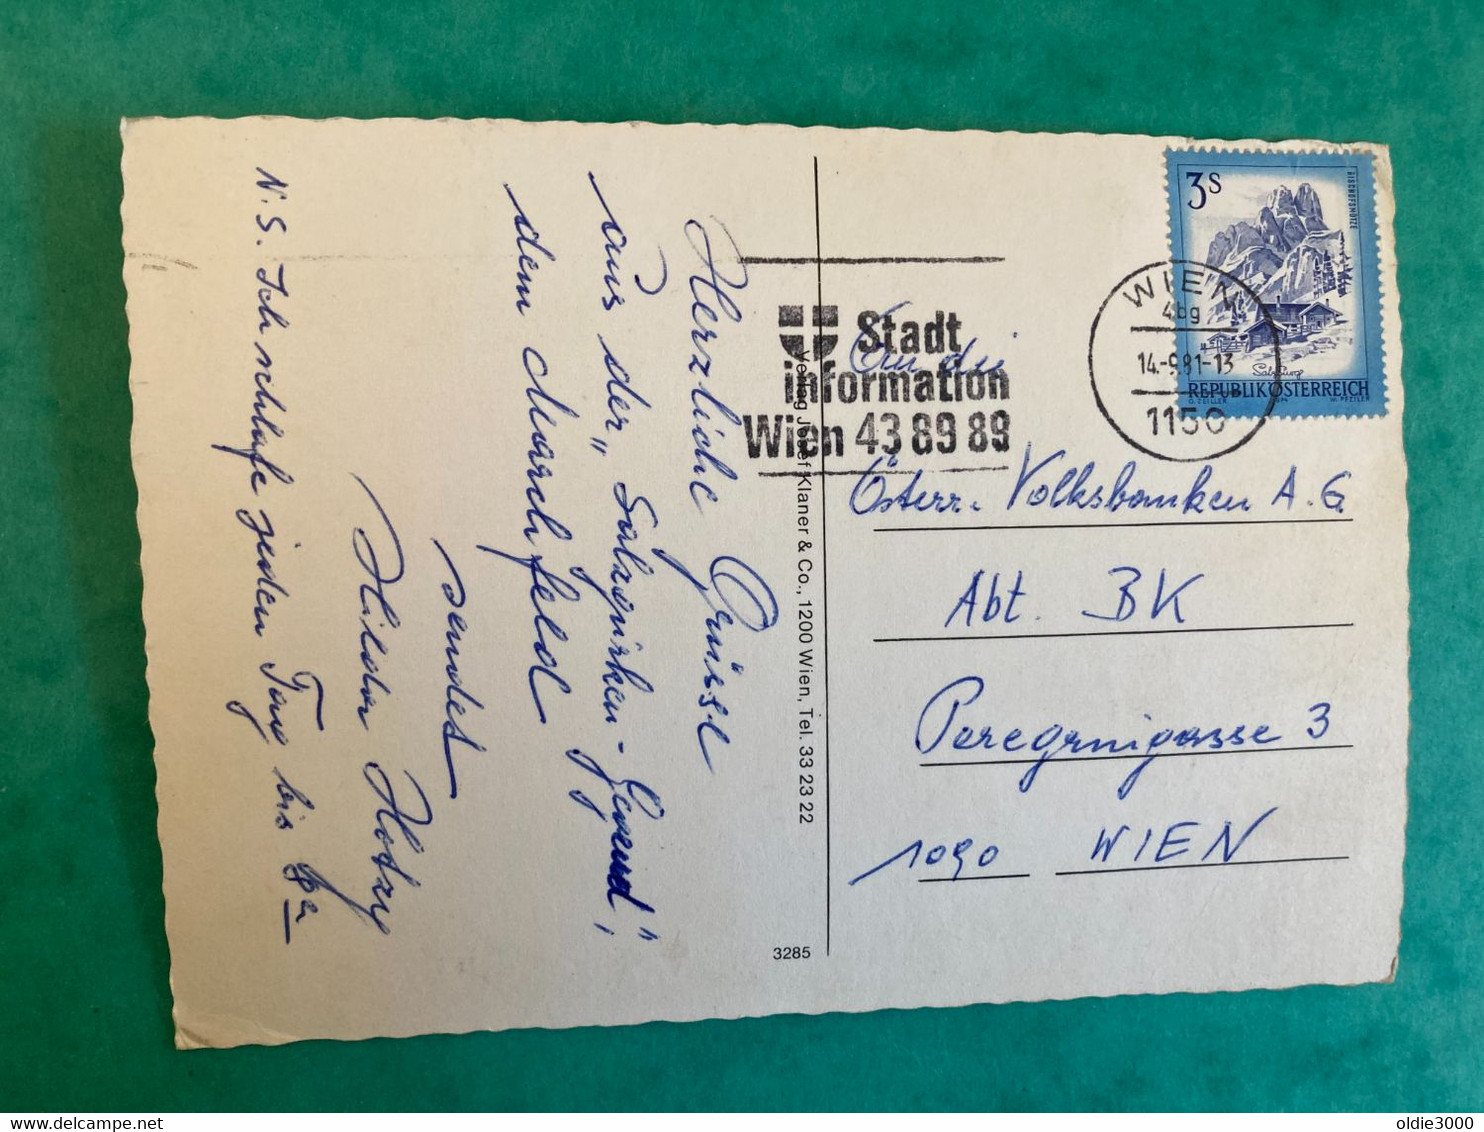 Herzliche Grüsse
aus der „Salzgurken-Gegend",
dem Marchfeld
sendet
Hilda
N.S. Ich schlafe jeden Tag bis
Verlag Josef Klaner & Co., 1200 Wien, Tel. 33 23 22
3285
Stadt
information
Wien 43 89 89
WIEN
4bg
14.-9.81-13
1150
3S
BISCHOFSMÜTZE
Salzburg
REPUBLIK ÖSTERREICH
O. ZEILLER
W. PFEILER
An die
Österr. Volksbanken A.G
Abt. BK
Peregringasse 3
1090 WIEN
oldie3000